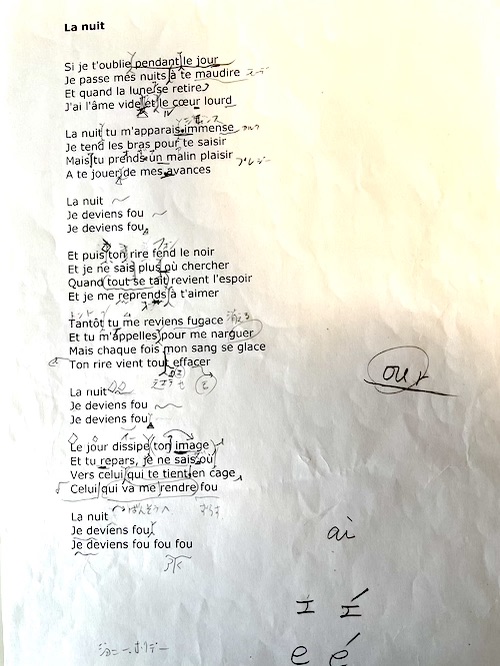 La nuit
Si je t'oublie pendant le jour
Je passe mes nuits à te maudire
Et quand la lune se retire
J'ai l'âme vide et le cœur lourd
La nuit tu m'apparais immense
Je tend les bras pour te saisir
Mais tu prends un malin plaisir
A te jouer de mes avances
La nuit
Je deviens fou
Je deviens fou
Et puis ton rire fend le noir
Et je ne sais plus où chercher
Quand tout se tait revient l'espoir
Et je me reprends à t'aimer
Tantôt tu me reviens fugace
Et tu m'appelles pour me narguer
Mais chaque fois mon sang se glace
Ton rire vient tout effacer
La nuit
Je deviens fou
Je deviens fou
Le jour dissipe ton image
Et tu repars, je ne sais où
Vers celui qui te tient en cage
Celui qui va me rendre fou
La nuit
ばんそう
Je deviens fou
Je deviens fou fou fou
our
ai
エ エ
e é
ジョニー・ホリデー